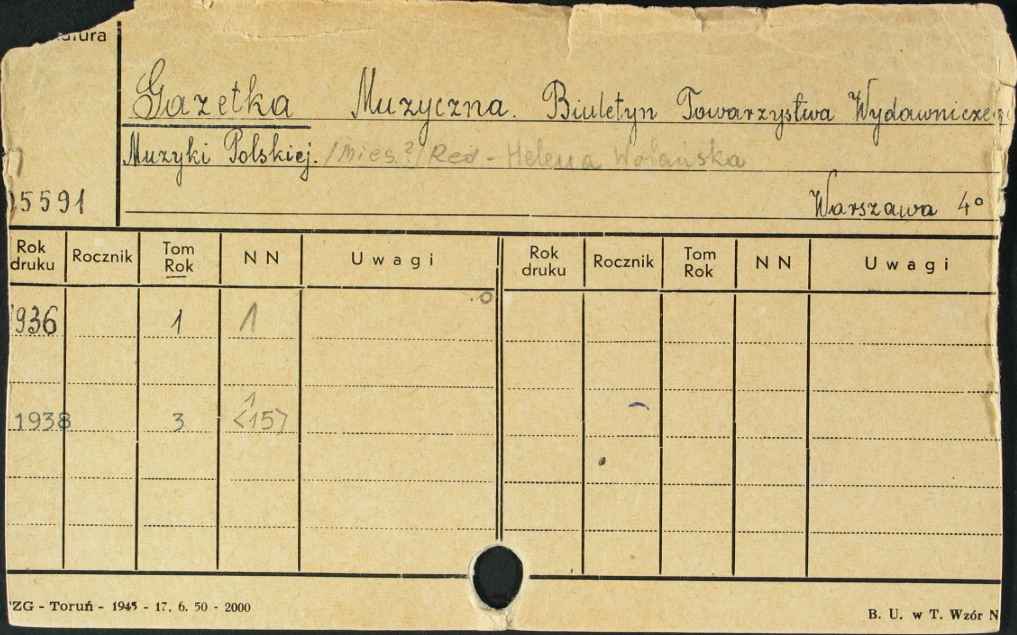 Gazetka Muzyczna. Biuletyn Towarzystwa Wydawniczego
Muzyki Polskiej. /mies.?/ Red - Helena Wolańska
5591
Warszawa 4°
Rok druku Rocznik Tom Rok N N Uwagi Rok druku Rocznik Tom Rok N N Uwagi
936 1 1
1938 3 1 <15>
ZG - Toruń - 1945 - 17. 6. 50 - 2000
B. U. w T. Wzór N